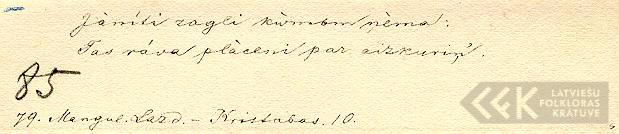 Jànı́ti zagli kùmbm ņèma:
Tas ráva plàceni par aizkuriņ'.
85
79. Mangul. Lazd. – Kristabas. 10.
LATVIEŠU
FOLKLORAS
KRATUVE